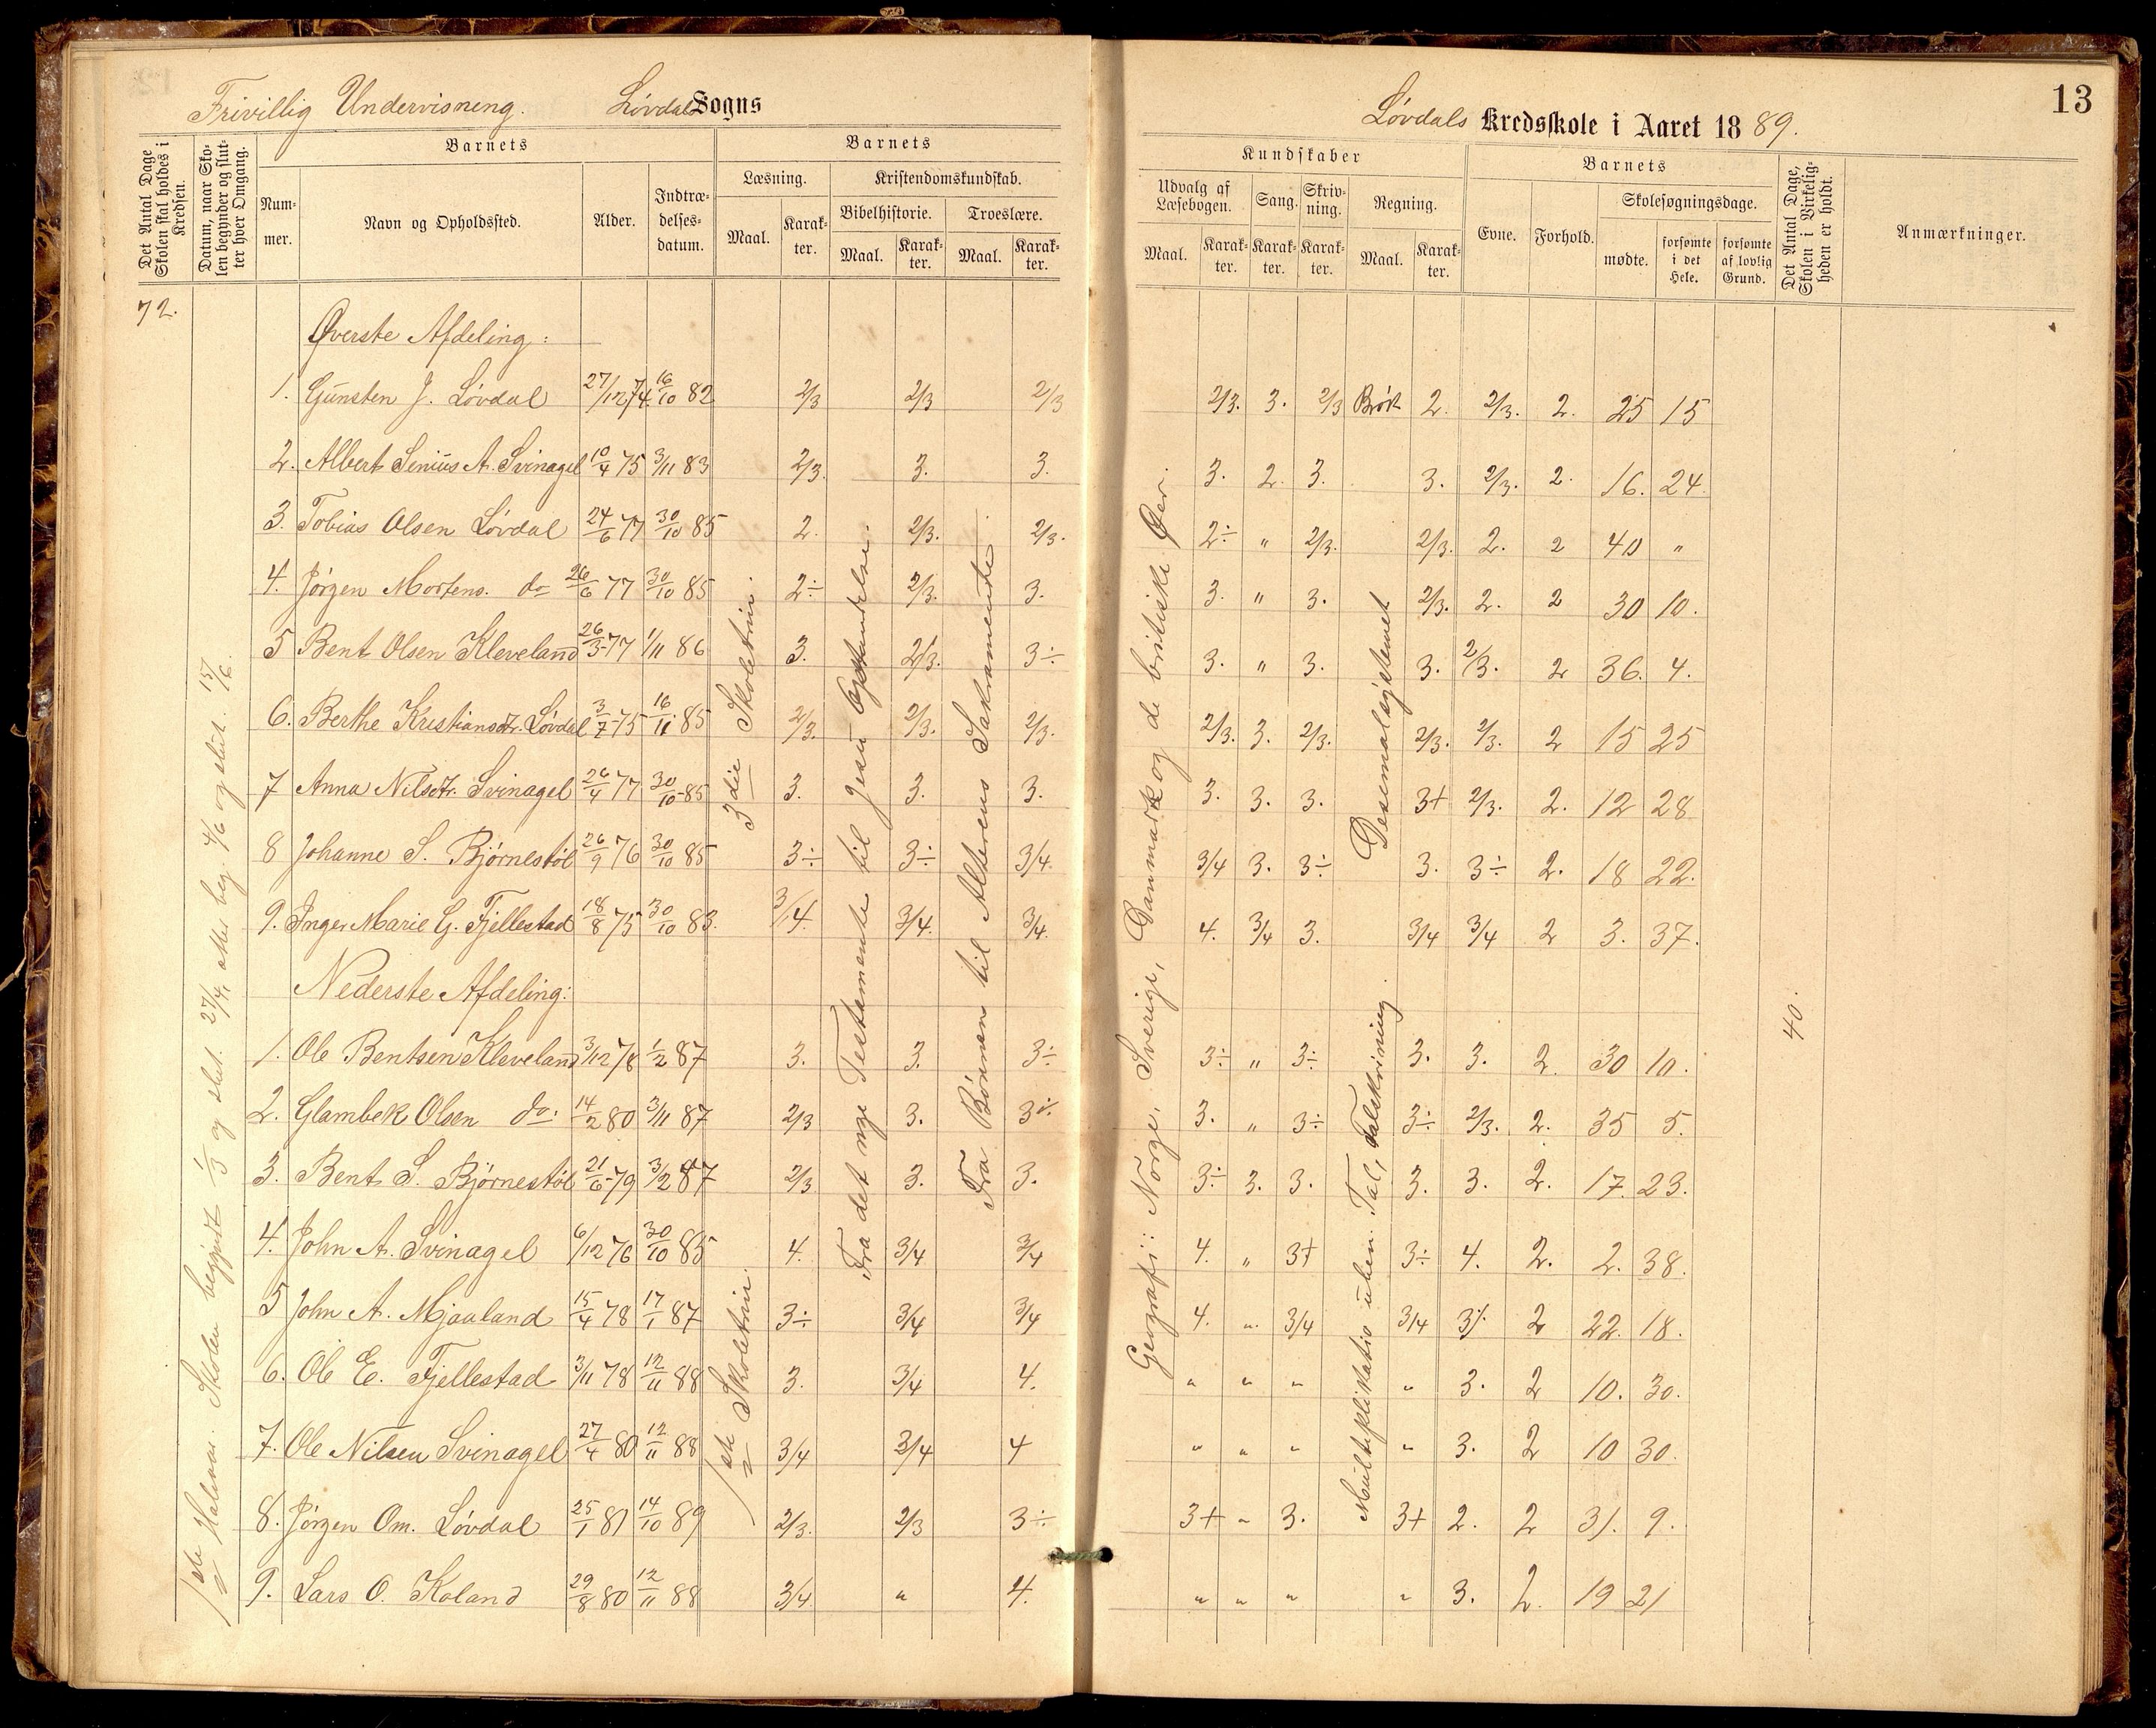 13
Frivillig Undervisning. Løvdals Sogns
Løvdals Kredsskole i Aaret 1889.
Det Antal Dage Skolen skal holdes i Kredsen.
Datum, naar Skolen begynder og slutter hver Omgang.
Barnets
Nummer.
Navn og Opholdssted.
Alder.
Indtrædelsesdatum.
Barnets
Læsning.
Maal.
Karakter.
Kristendomskundskab.
Bibelhistorie.
Maal.
Karakter.
Troeslære.
Maal.
Karakter.
Kundskaber
Udvalg af Læsebogen.
Maal.
Karakter.
Sang.
Karakter.
Skrivning.
Karakter.
Regning.
Maal.
Karakter.
Barnets
Evne.
Forhold.
Skolesøgningsdage.
mødte.
forsømte i det Hele.
forsømte af lovlig Grund.
Det Antal Dage, Skolen i Virkeligheden er holdt.
Anmærkninger.
72.
1ste Halvaar. Skolen begyndt 1/3 og slut. 27/4, atter beg. 4/6 og slut. 15/6.
3die Skoletrin.
1ste Skoletrin.
Fra det nye Testamente til Jesu Opstandelse.
Fra Bønnen til Alterens Sakramente.
Geografi: Norge, Sverige, Danmark og de britiske Øer.
Desemalsystemet
Multiplikatio uben. Tal, Talskrivning.
40.
Øverste Afdeling:
1. Gunsten J. Løvdal 27/12 74. 16/10 82 2/3 2/3 2/3 2/3. 3. 2/3 Brøk 2. 2/3. 2. 25 15
2. Albert Senius A. Svinagel 10/4 75 3/11 83 2/3. 3. 3. 3. 2. 3. 3. 2/3. 2. 16. 24.
3. Tobias Olsen Løvdal 24/6 77 30/10 85 2. 2/3. 2/3. 2÷ " 2/3. 2/3. 2. 2 40 "
4. Jørgen Mortens. do 26/6 77 30/10 85 2÷ 2/3. 3. 3. " 3. 2/3. 2. 2 30 10.
5 Bent Olsen Kleveland 26/3 77 1/11 86 3. 2/3. 3÷ 3. " 3. 3. 2/3. 2 36. 4.
6. Berthe Kristiansdtr. Løvdal 3/7 75 16/11 85 2/3. 2/3. 2/3. 2/3. 3. 2/3. 2/3. 2/3. 2 15 25
7 Anna Nilsdtr. Svinagel 26/4 77 30/10 85 3. 3. 3. 3. 3. 3. 3+ 2/3. 2. 12 28
8 Johanne S. Bjørnestøl 26/9 76 30/10 85 3÷ 3÷ 3/4. 3/4 3. 3÷ 3. 3÷ 2. 18 22.
9. Inger Marie G. Fjellestad 18/8 75 30/10 83. 3/4. 3/4. 3/4. 4. 3/4 3. 3/4 3/4 2 3. 37.
Nederste Afdeling:
1. Ole Bentsen Kleveland 3/12 78 1/2 87 3. 3. 3÷ 3÷ " 3÷ 3. 3. 2. 30 10.
2. Glambek Olsen do. 14/2 80 3/11 87 2/3 3. 3÷ 3. " 3÷ 3÷ 2/3. 2. 35 5.
3. Bent S. Bjørnestøl 21/6 79 3/2 87 2/3 3. 3. 3÷ 3. 3. 3. 3. 2. 17. 23.
4. John A. Svinagel 6/12 76 30/10 85 4. 3/4 3/4 4. " 3+ 3÷ 4. 2. 2. 38.
5 John A. Mjaaland 15/4 78 17/1 87 3÷ 3/4 3/4 4. " 3/4 3/4 3÷ 2 22. 18.
6. Ole E. Fjellestad 3/11 78 12/11 88 3. 3/4 4. " " " " 3. 2 10. 30.
7. Ole Nilsen Svinagel 27/4 80 12/11 88 3/4 3/4 4 " " " " 3. 2 10 30.
8. Jørgen Om. Løvdal 25/1 81 14/10 89 2/3. 2/3 3÷ 3+ " 3. 3+ 2. 2 31. 9.
9. Lars O. Koland 29/8 80 12/11 88 3/4. " 4. " " " " 3. 2. 19 21